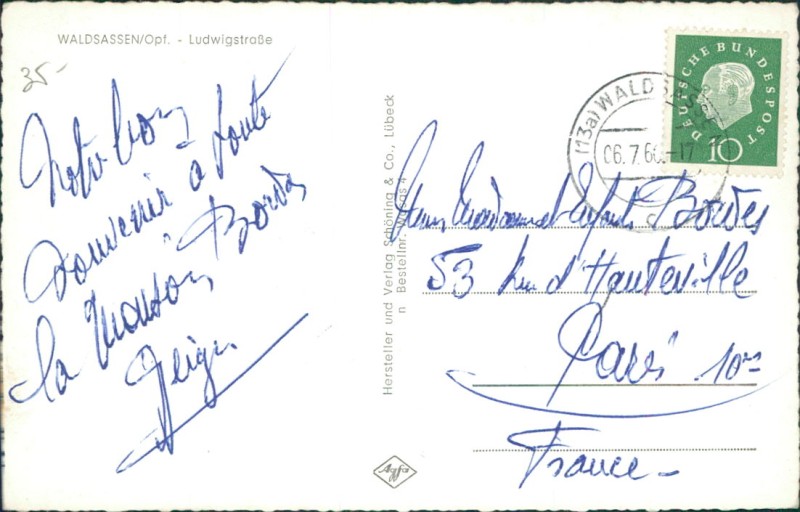 WALDSASSEN/Opf. - Ludwigstraße
35-
Notre bon
souvenir à toute
la Maison Bordes
Hersteller und Verlag Schöning & Co., Lübeck
n Bestellnr.
DEUTSCHE BUNDESPOST
10
(13a) WALDSASSEN
06.7.60.-17
d
Bordes
53 Rue d'Hauteville
Paris 10me
France-
Agfa